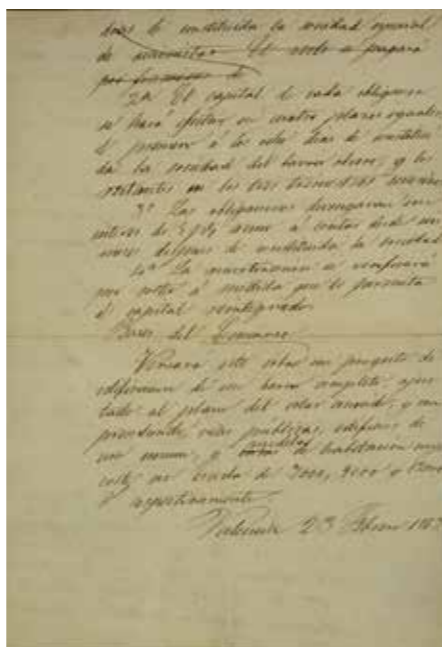 dias de constituida la sociedad general
de accionistas. El resto se pagará
por
2ª El capital de cada obligacion
se hará efectivo en cuatro plazos iguales
el primero á los ocho dias de constitui
da la sociedad del barrio obrero, y los
restantes en los tres trimestres
3ª Las obligaciones devengaran un
interes de 5 p% anual á contar desde un
mes despues de constituida la sociedad
4ª La amortizacion se verificará
por sorteo á medida que lo permita
el capital reintegrado.
Bases del Concurso
Versara este sobre un proyecto de
edificacion de un barrio completo, ajus
tado al plano del solar y com
prendiendo vias publicas, edificios de
uso comun, y modelos de habitacion cuyo
coste no esceda de 7000, 9000 y
respectivamente.
Valencia 23 Febrero